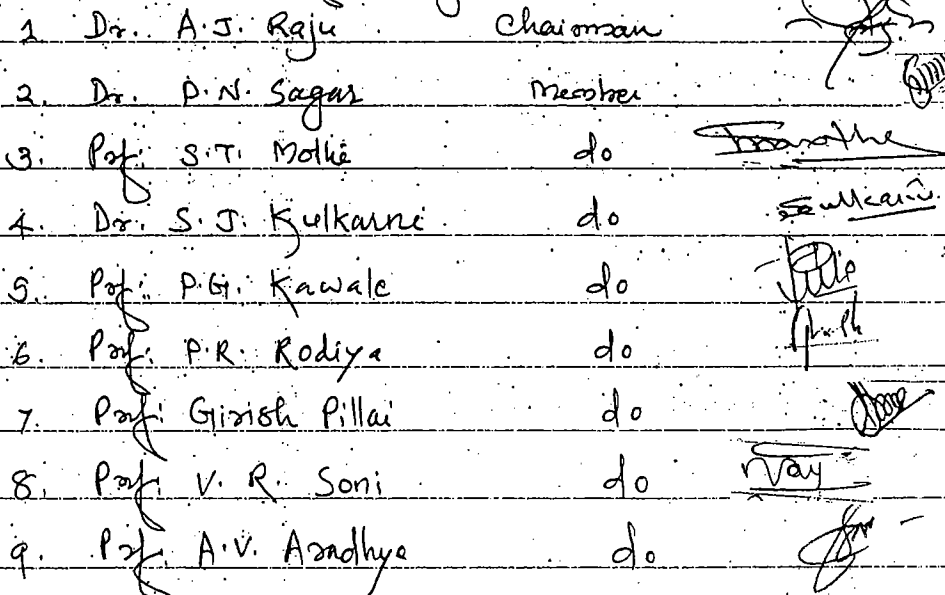 1. Dr. A.J. Raju Chairman
2. Dr. D.N. Sagar Member
3. Prof. S.T. Mothe do Marathe
4. Dr. S.J. Kulkarni do Kulkarni
5. Prof. P.G. Kawale do
6. Prof. P.R. Rodiya do
7. Prof. Girish Pillai do
8. Prof. V.R. Soni do
9. Prof. A.V. Aradhya do